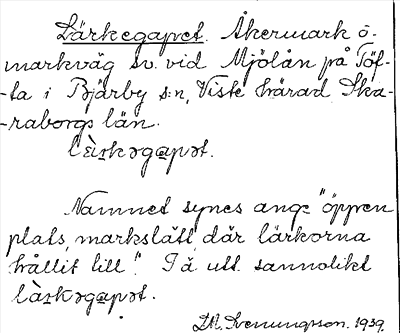 Lärkegapet. Åkermark ö.
markväg sv. vid Mjölån på Töf-
-ta i Bjärby s:n, Viste härad Ska-
-raborgs län.
Namnet synes ange "öppen
plats, markslätt, där lärkorna
hållit till". I ä utt. sannolikt
Svenungson. 1939.